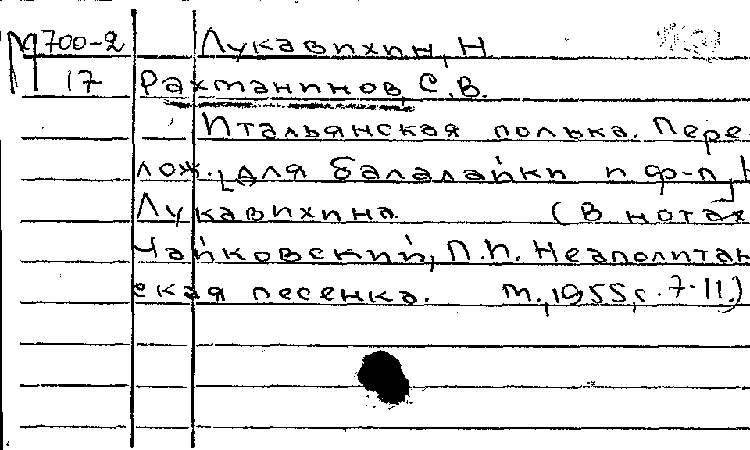 М700-2 Лукавихин, Н
17 Рахманинов, С.В.
Итальянская полька. Пере
лож. для балалайки и ф-п,
Лукавихина (В нотах
Чайковский, П.И. Неаполитан
ская песенка. М., 1955, с. 7-11.)